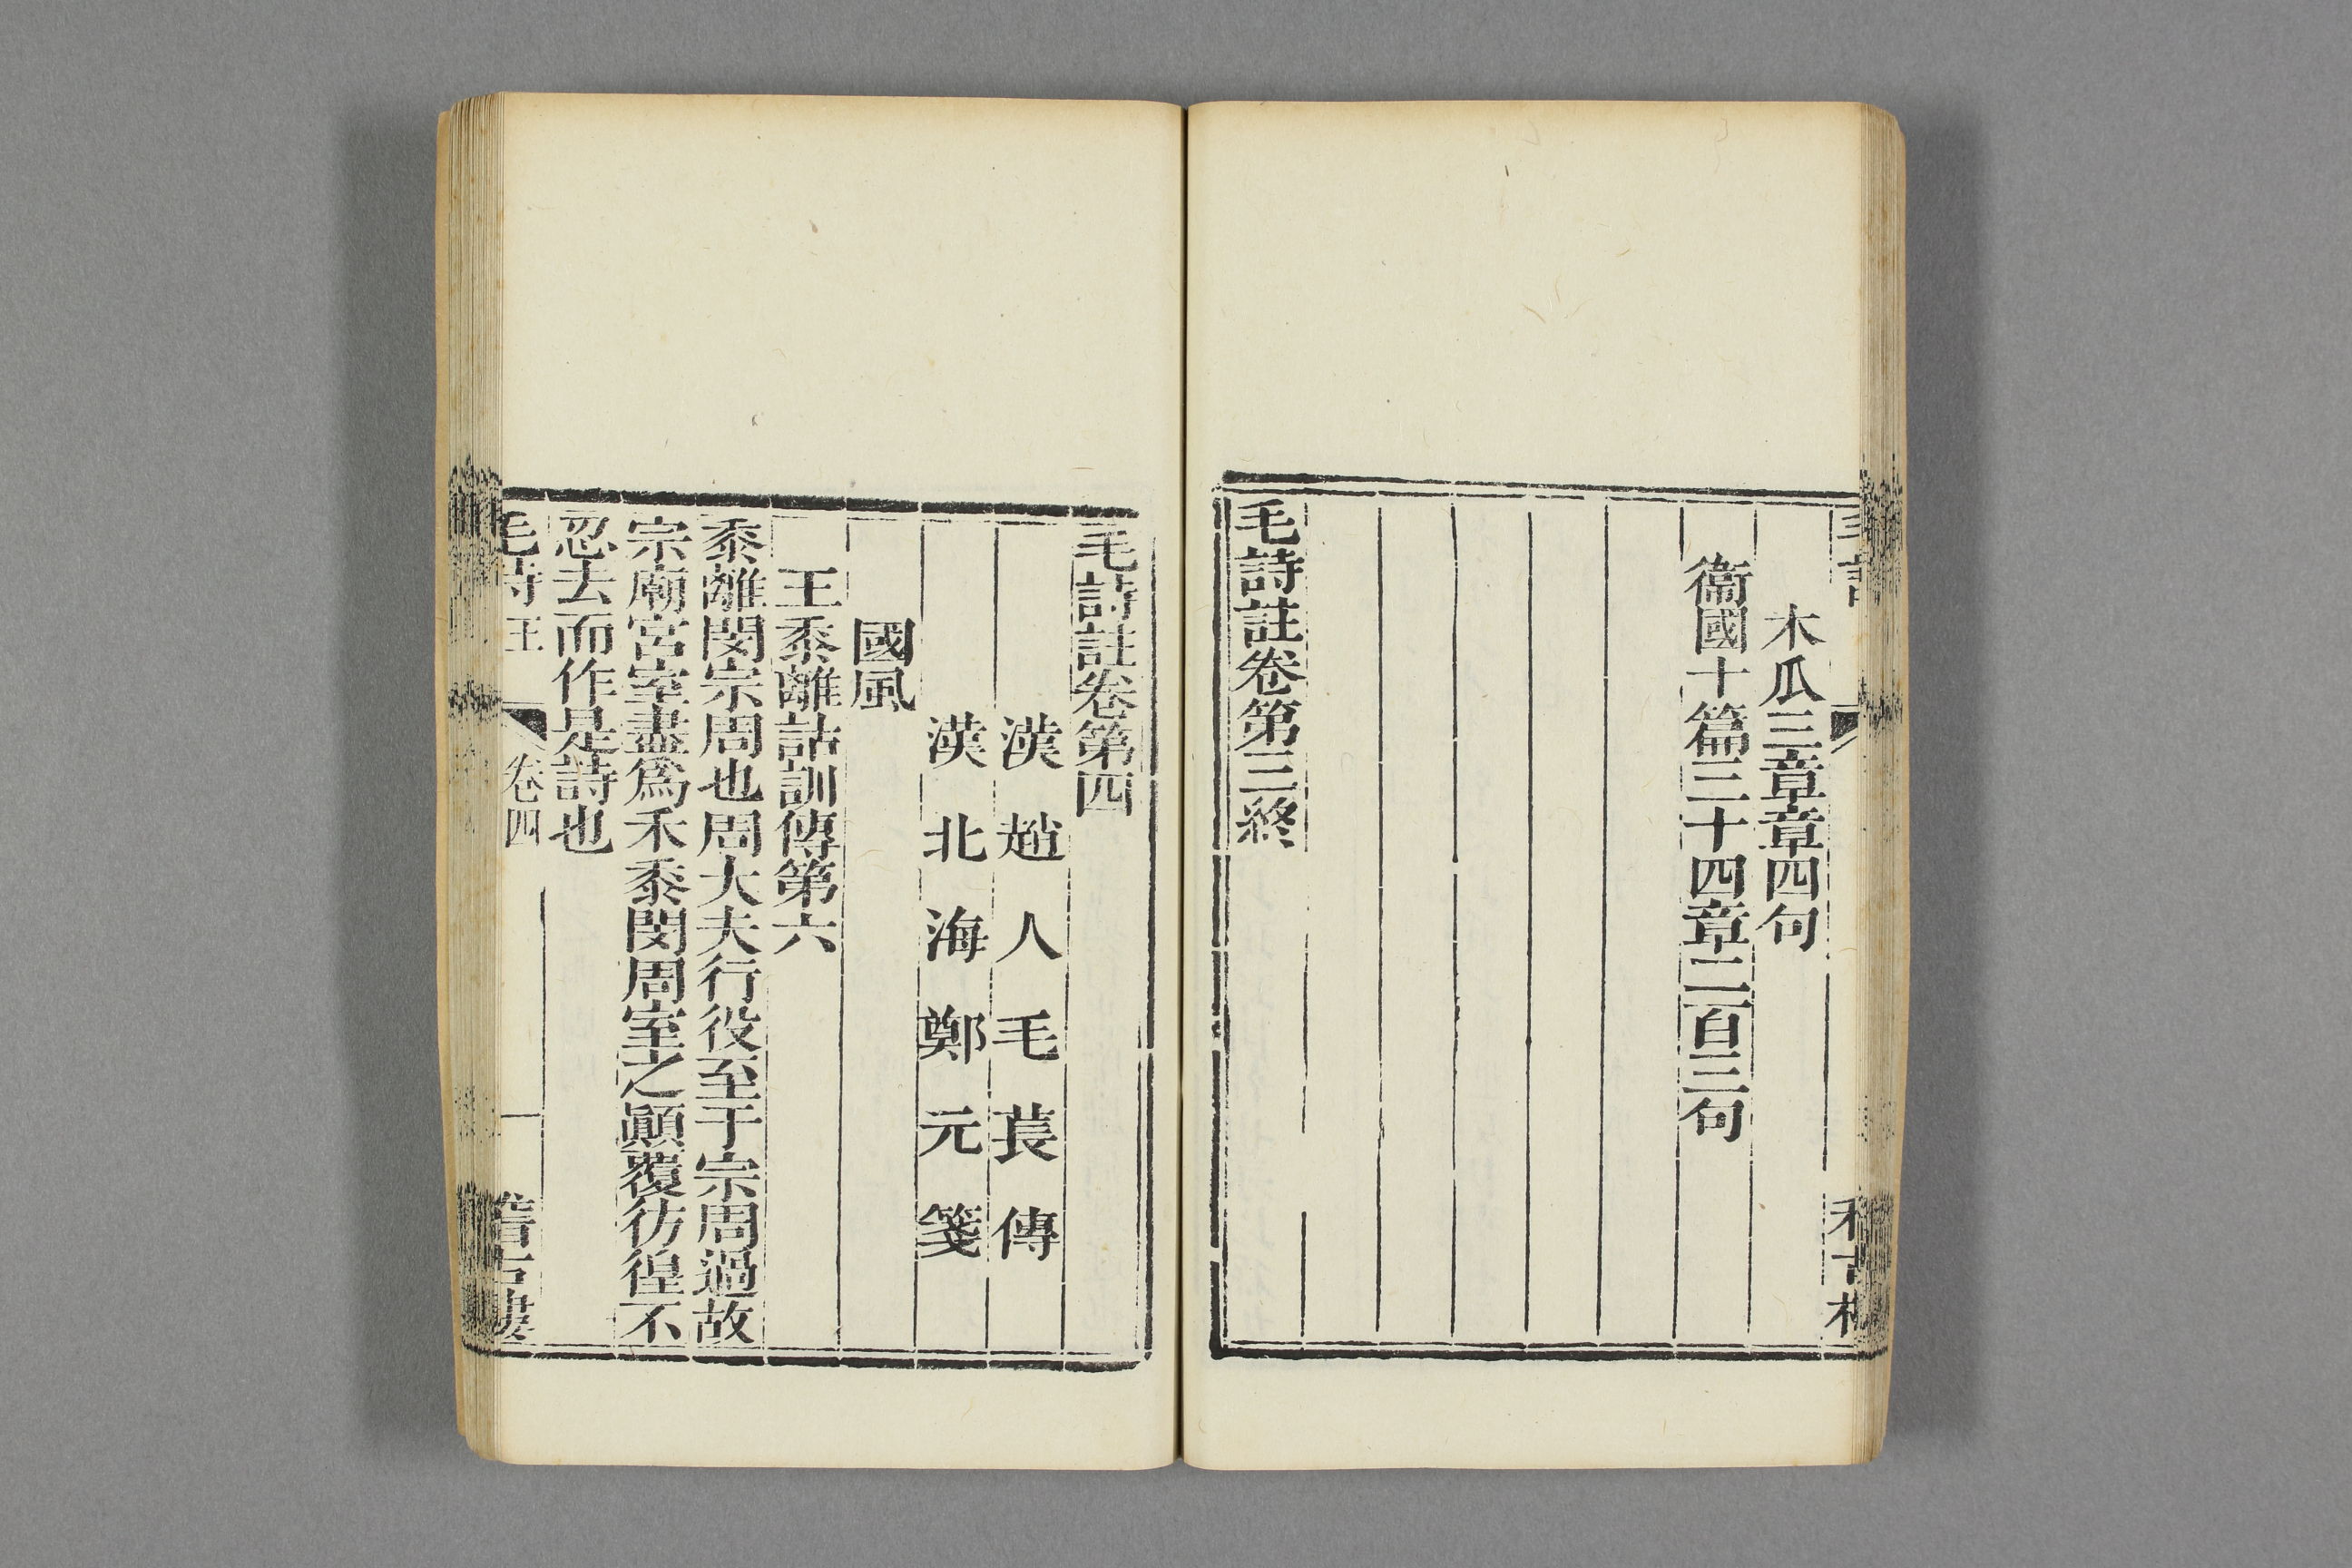 木瓜三章章四句
衞國十篇三十四章二百三句
毛詩註卷第三終
毛詩註卷第四
漢趙人毛萇傳
漢北海鄭元箋
國風
王黍離詁訓傳第六
黍離閔宗周也周大夫行役至于宗周過故
宗廟宮室盡爲禾黍閔周室之顚覆彷徨不
忍去而作是詩也
毛詩 王 卷四 一